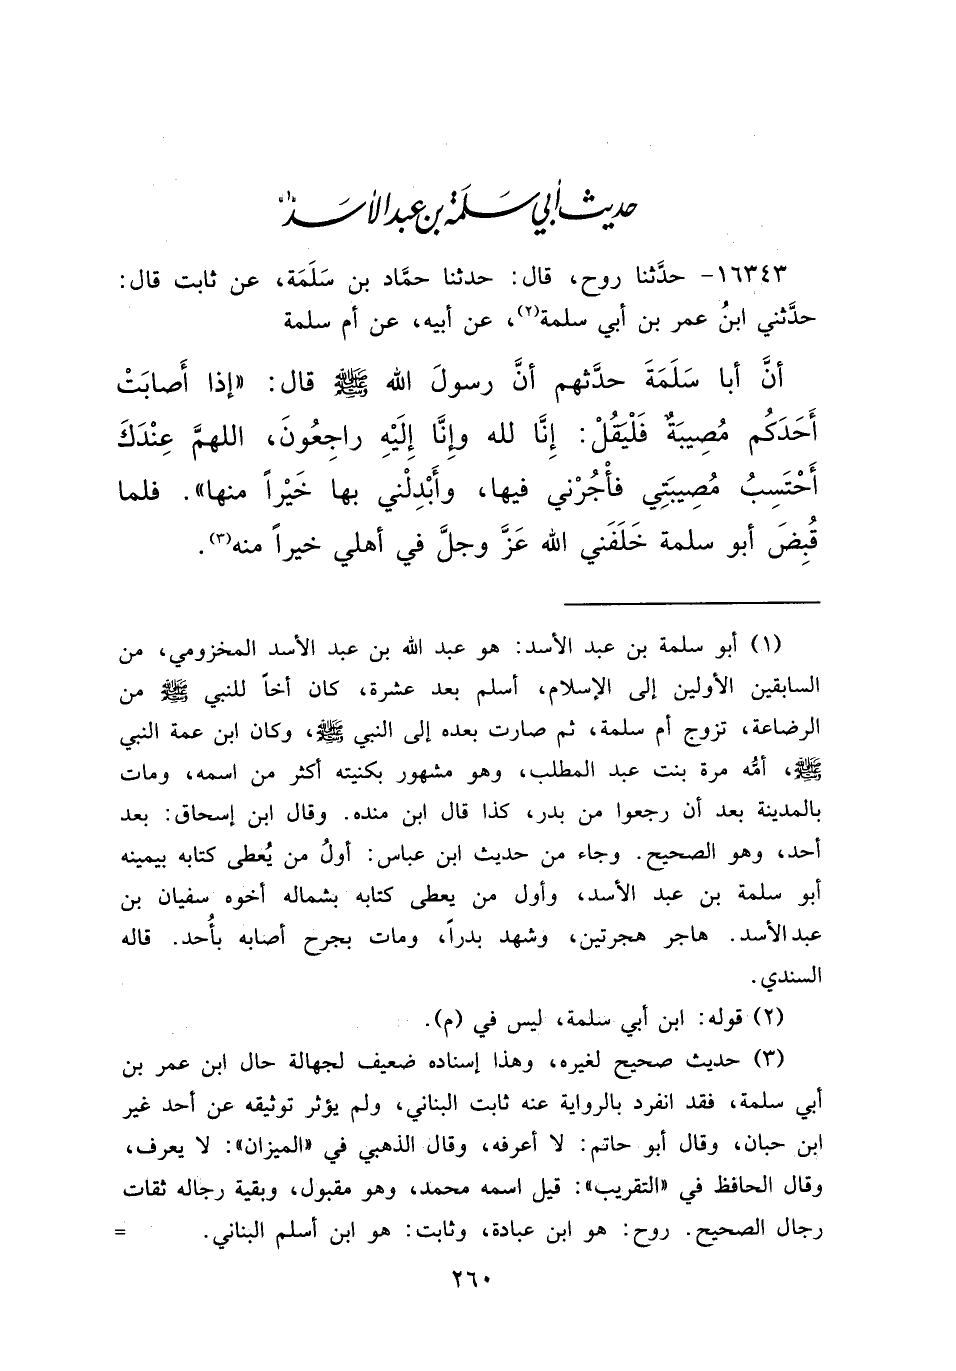 حديث أبي سلمة بن عبد الأسد(١)
١٦٣٤٣- حدَّثنا روح، قال: حدثنا حمَّاد بن سَلَمَة، عن ثابت قال:
حدَّثني ابنُ عمر بن أبي سلمة(٢)، عن أبيه، عن أم سلمة
أنَّ أبا سَلَمَةَ حدَّثهم أنَّ رسولَ الله ﷺ قال: «إذا أَصابَتْ
أَحَدَكُم مُصِيبَةٌ فَلْيَقُلْ: إِنَّا لله وإِنَّا إِلَيْهِ راجِعُونَ، اللهمَّ عِنْدَكَ
أَحْتَسِبُ مُصِيبَتِي فأْجُرْني فيها، وأَبْدِلْني بها خَيْراً منها». فلما
قُبِضَ أبو سلمة خَلَفَني الله عَزَّ وجلَّ في أهلي خيراً منه(٣).
(١) أبو سلمة بن عبد الأسد: هو عبد الله بن عبد الأسد المخزومي، من
السابقين الأولين إلى الإسلام، أسلم بعد عشرة، كان أخاً للنبي ﷺ من
الرضاعة، تزوج أم سلمة، ثم صارت بعده إلى النبي ﷺ، وكان ابن عمة النبي
ﷺ، أمُّه مرة بنت عبد المطلب، وهو مشهور بكنيته أكثر من اسمه، ومات
بالمدينة بعد أن رجعوا من بدر، كذا قال ابن منده. وقال ابن إسحاق: بعد
أحد، وهو الصحيح. وجاء من حديث ابن عباس: أولُ من يُعطى كتابه بيمينه
أبو سلمة بن عبد الأسد، وأول من يعطى كتابه بشماله أخوه سفيان بن
عبد الأسد. هاجر هجرتين، وشهد بدراً، ومات بجرح أصابه بأُحد. قاله
السندي.
(٢) قوله: ابن أبي سلمة، ليس في (م).
(٣) حديث صحيح لغيره، وهذا إسناده ضعيف لجهالة حال ابن عمر بن
أبي سلمة، فقد انفرد بالرواية عنه ثابت البناني، ولم يؤثر توثيقه عن أحد غير
ابن حبان، وقال أبو حاتم: لا أعرفه، وقال الذهبي في «الميزان»: لا يعرف،
وقال الحافظ في «التقريب»: قيل اسمه محمد، وهو مقبول، وبقية رجاله ثقات
رجال الصحيح. روح: هو ابن عبادة، وثابت: هو ابن أسلم البناني. =
٢٦٠